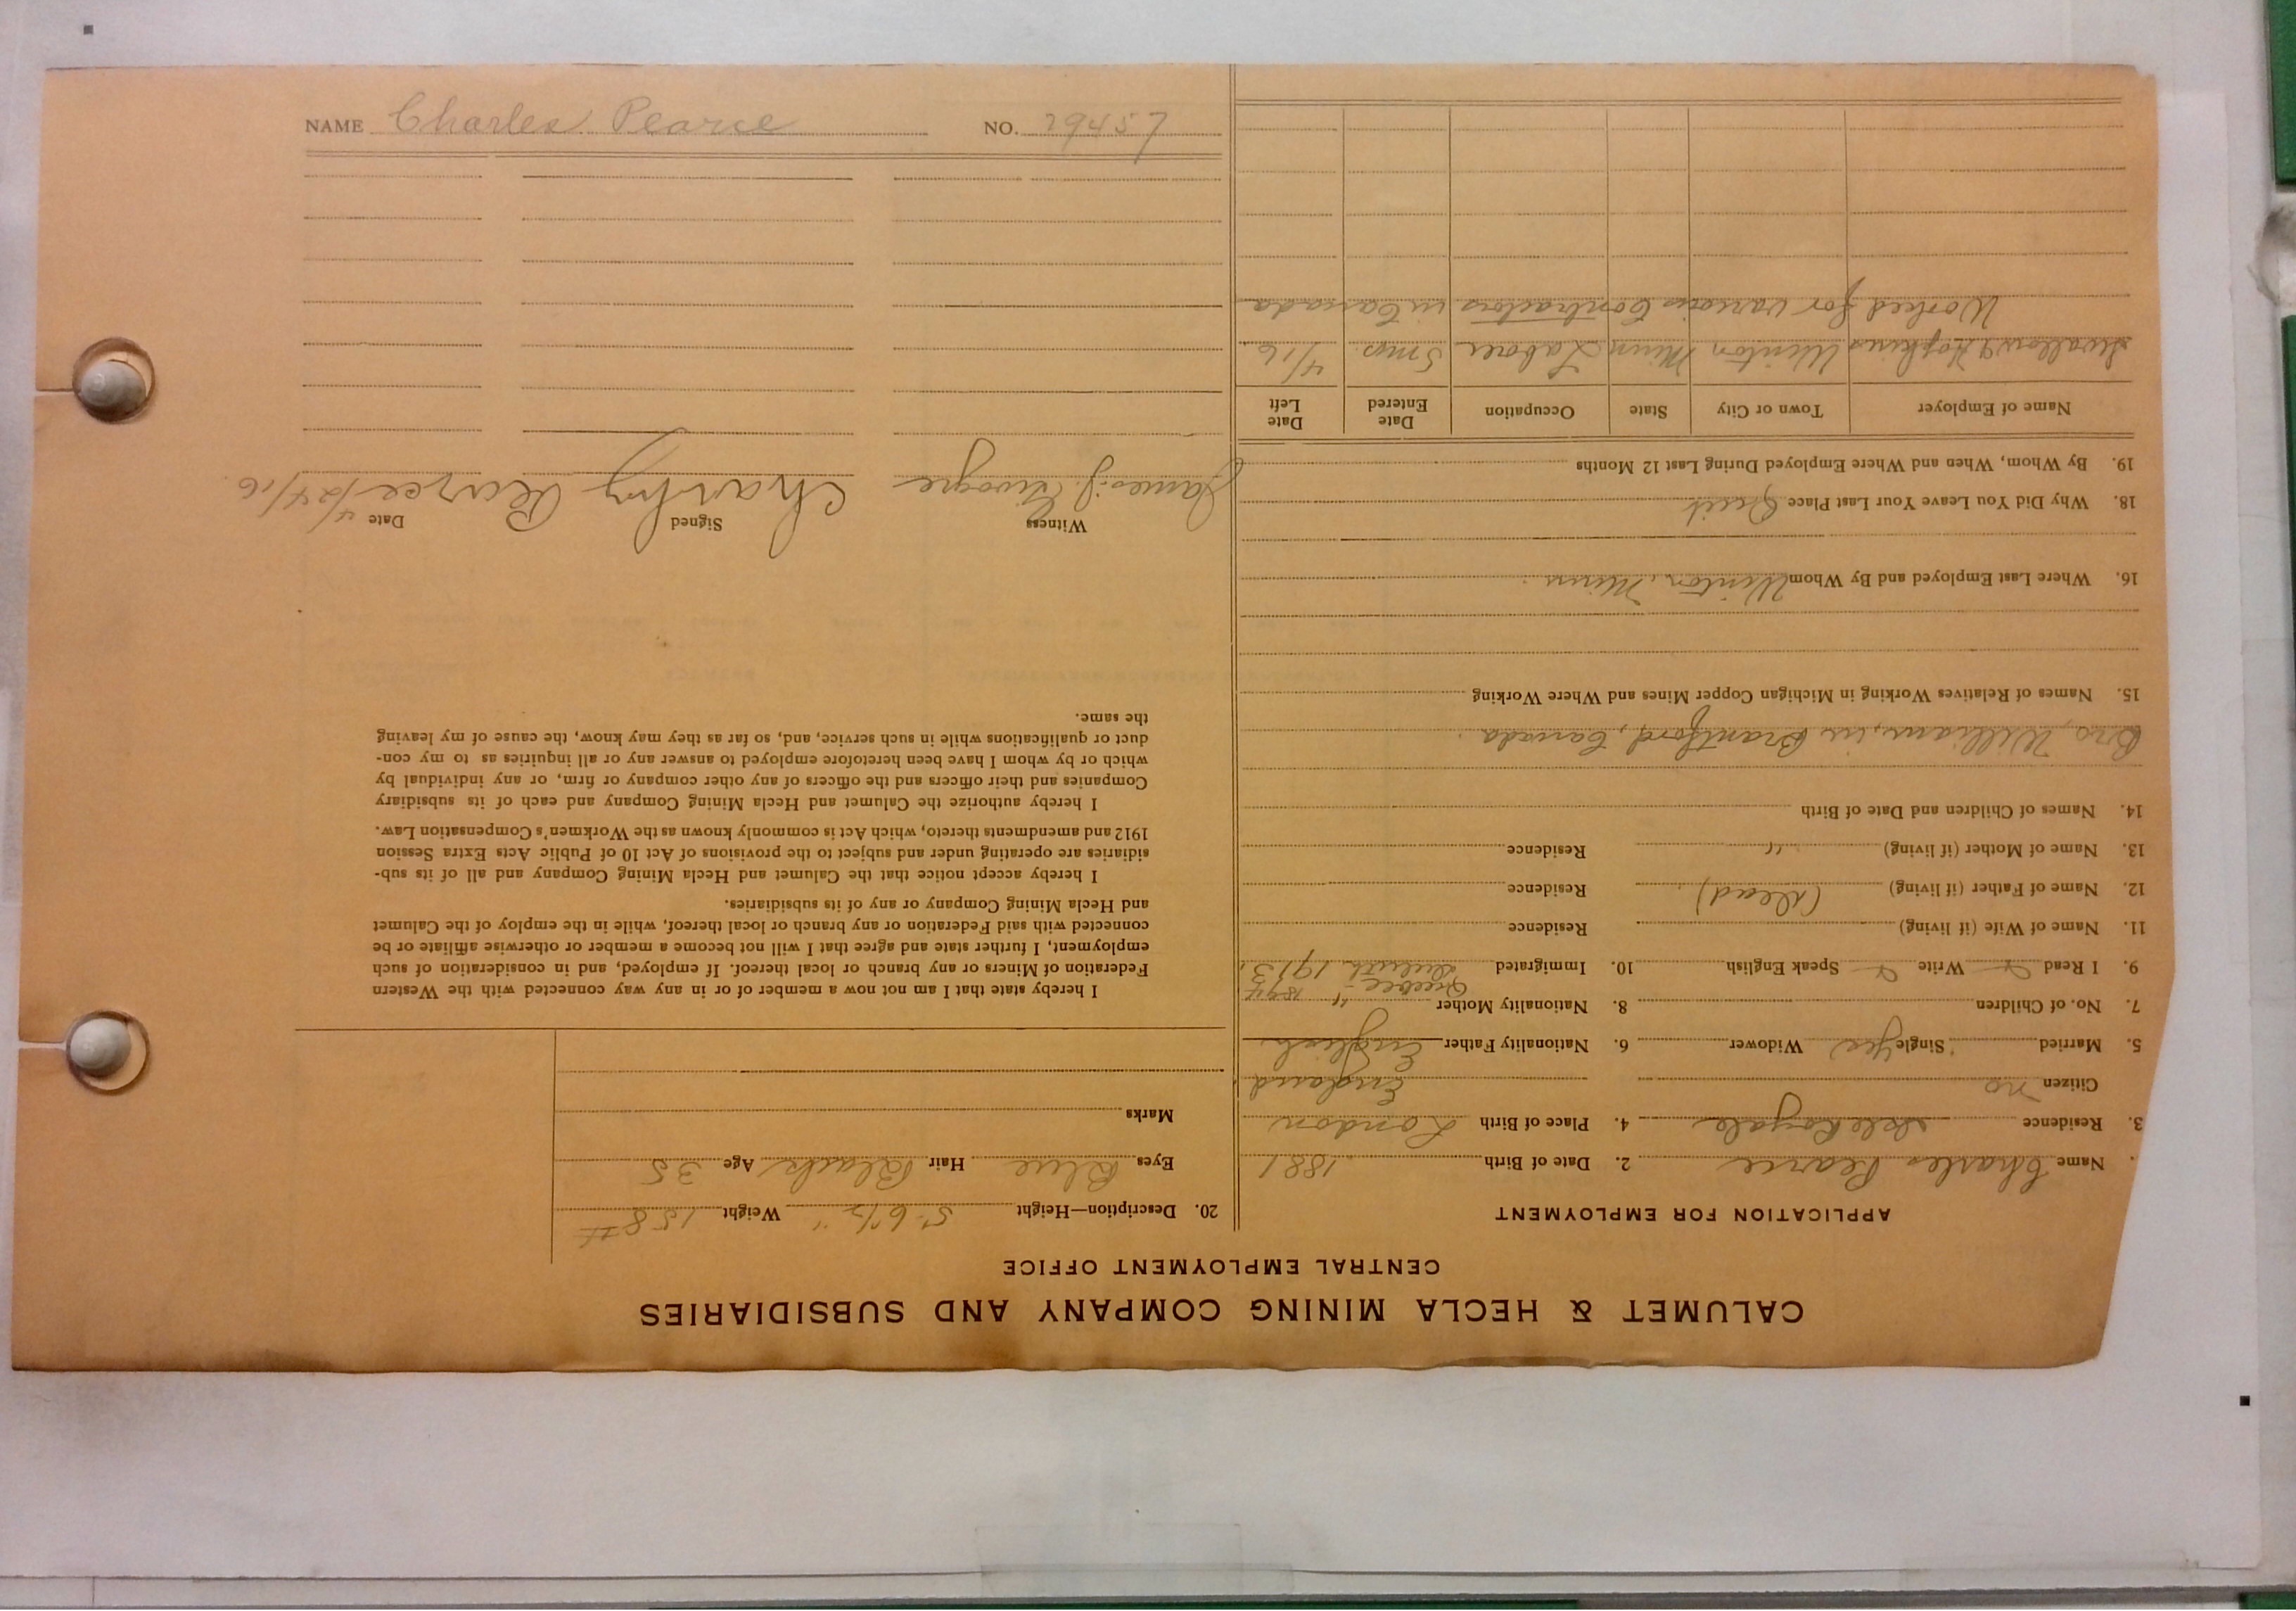 CALUMET & HECLA MINING COMPANY AND SUBSIDIARIES
CENTRAL EMPLOYMENT OFFICE
APPLICATION FOR EMPLOYMENT
. Name Charles Pearce 2. Date of Birth 1881
3. Residence Isle Royale 4. Place of Birth London
Citizen no England
5. Married Single Yes Widower 6. Nationality Father English
7. No. of Children 8. Nationality Mother "
Quebec 1894
9. I Read Write Speak English 10. Immigrated Duluth 1913
11. Name of Wife (if living) Residence
12. Name of Father (if living) (dead) Residence
13. Name of Mother (if living) " Residence
14. Names of Children and Date of Birth
Bro, William, in Brantford, Canada
15. Names of Relatives Working in Michigan Copper Mines and Where Working
16. Where Last Employed and By Whom Winton, Minn
18. Why Did You Leave Your Last Place Quit
19. By Whom, When and Where Employed During Last 12 Months
Name of Employer Town or City State Occupation Date Entered Date Left
Swallow & Hopkins Winton Minn Laborer 5 mos. 4/16
Worked for various Contractors in Canada
20. Description—Height 5'-6½" Weight 158#
Eyes Blue Hair Black Age 35
Marks
I hereby state that I am not now a member of or in any way connected with the Western
Federation of Miners or any branch or local thereof. If employed, and in consideration of such
employment, I further state and agree that I will not become a member or otherwise affiliate or be
connected with said Federation or any branch or local thereof, while in the employ of the Calumet
and Hecla Mining Company or any of its subsidiaries.
I hereby accept notice that the Calumet and Hecla Mining Company and all of its sub-
sidiaries are operating under and subject to the provisions of Act 10 of Public Acts Extra Session
1912 and amendments thereto, which Act is commonly known as the Workmen's Compensation Law.
I hereby authorize the Calumet and Hecla Mining Company and each of its subsidiary
Companies and their officers and the officers of any other company or firm, or any individual by
which or by whom I have been heretofore employed to answer any or all inquiries as to my con-
duct or qualifications while in such service, and, so far as they may know, the cause of my leaving
the same.
Witness Signed Date
James J. Charley Pearce 4/24/16
NAME Charles Pearce NO. 29457